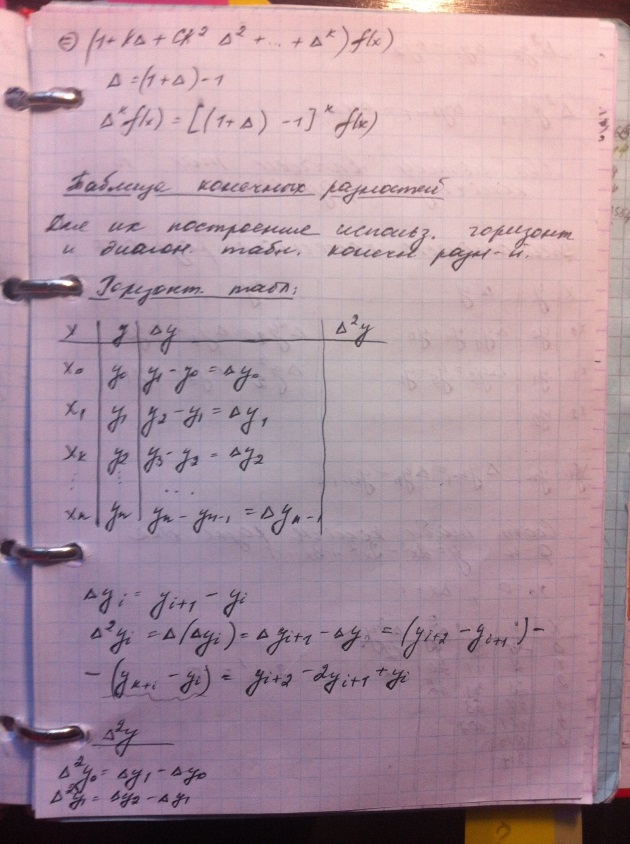 ⊜ (1 + kΔ + Ck² Δ² + ... + Δᵏ) f(x)
Δ = (1+Δ) - 1
Δᵏf(x) = [(1+Δ) - 1]ᵏ f(x)
Таблица конечных разностей
Для их построения использ. горизонт
и диагон. табл. конечн разн-й.
Горизонт. табл:
x | y | Δy | Δ²y
x₀ | y₀ | y₁ - y₀ = Δy₀
x₁ | y₁ | y₂ - y₁ = Δy₁
xₖ | y₂ | y₃ - y₂ = Δy₂
⋮ ⋮ ...
xₙ | yₙ | yₙ - yₙ₋₁ = Δyₙ₋₁
Δyᵢ = yᵢ₊₁ - yᵢ
Δ²yᵢ = Δ(Δyᵢ) = Δyᵢ₊₁ - Δyᵢ = (yᵢ₊₂ - yᵢ₊₁) -
- (yₖ₊ᵢ - yᵢ) = yᵢ₊₂ - 2yᵢ₊₁ + yᵢ
Δ²y
Δ²y₀ = Δy₁ - Δy₀
Δ²y₁ = Δy₂ - Δy₁